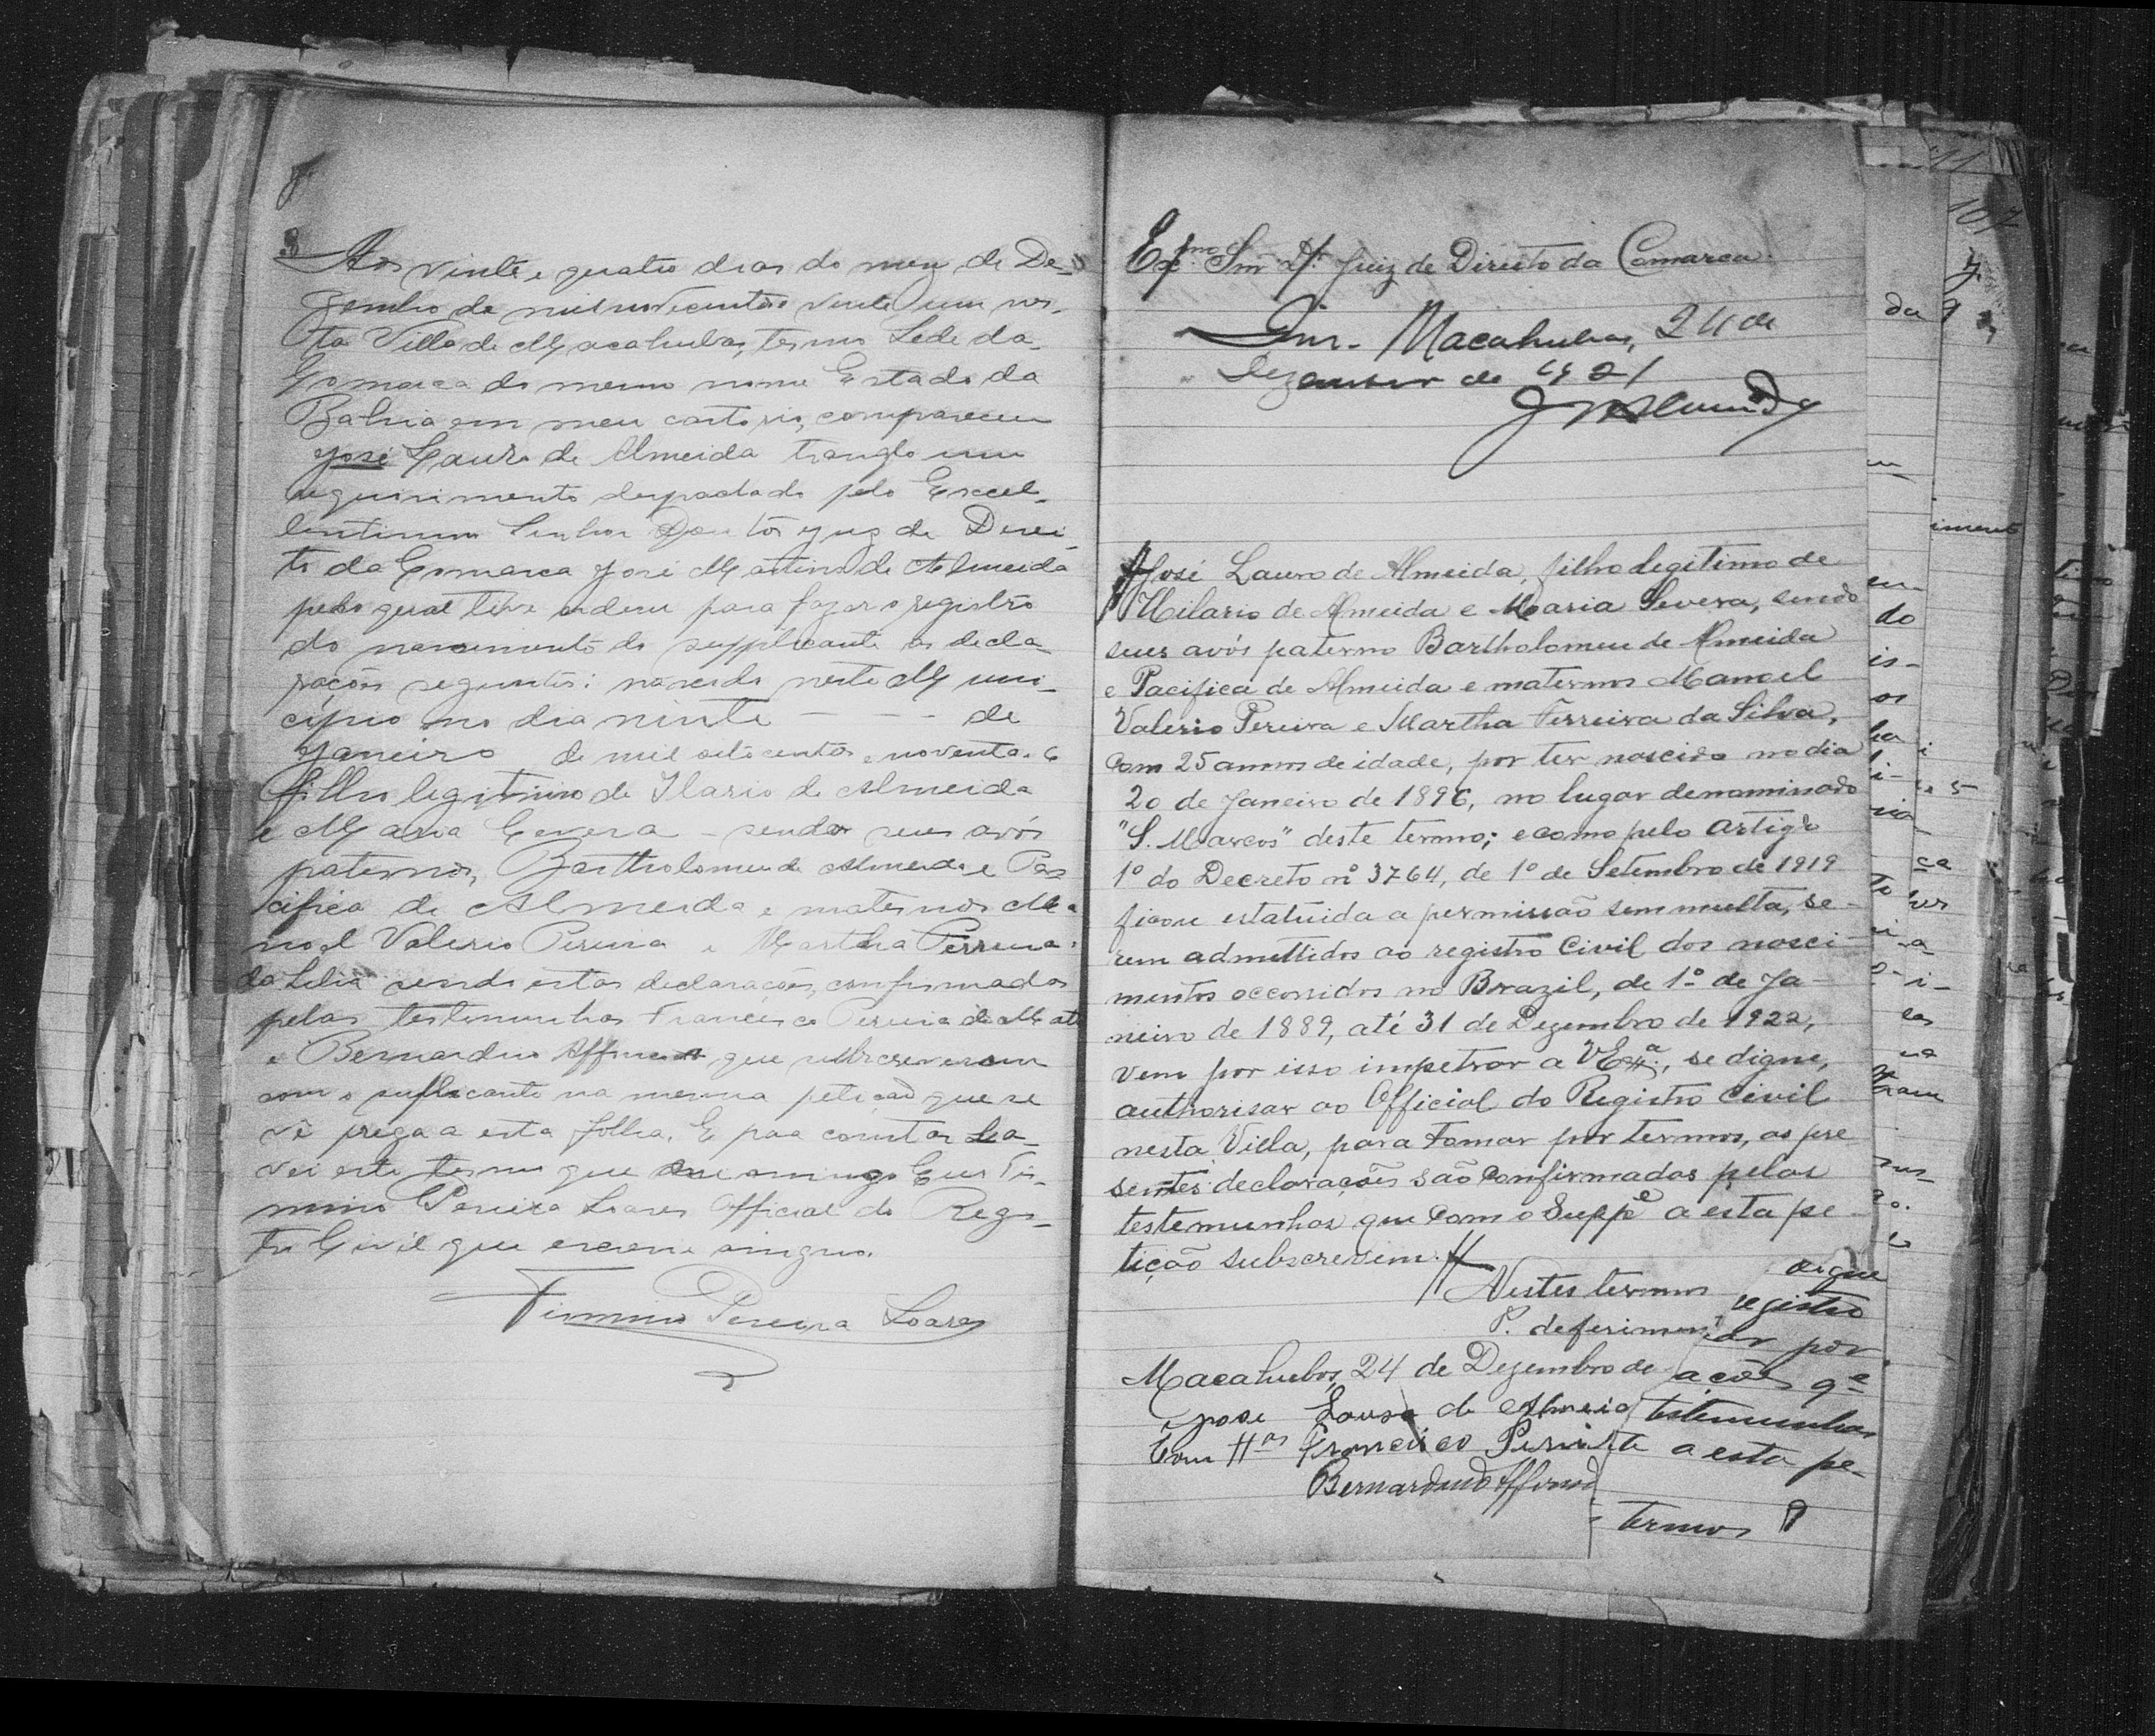 Aos vinte e quatro dias do mez de De-
zembro de mil novecentos e vinte um nes-
ta Villa de Macahubas, termo Sede da
Comarca do mesmo nome Estado da
Bahia em meu cartorio, compareceu
José Lauro de Almeida trasendo um
requirimento despachado pelo Excel-
lentissimo Senhor Doutor Juiz de Direi-
to da Comarca José Martins de Almeida
pelo qual tive ordem para fazer o registro
do nascimento do supplicante as decla-
rações seguintes: nascido neste Muni-
cipio no dia vinte - - - de
Janeiro de mil oitocentos e noventa e 6
filho legitimo de Ilario de Almeida
e Maria Severa - sendo seus avós
paternos, Bartholomeu de Almeida e Pa-
cifica de Almeida e maternos Ma
noel Valerio Pereira e Martha Ferreira
da Silva sendo estas declarações, confirmadas
pelas testemunhas Francisco Pereira de Matos
e Bernardino Affonso que subscreveram
com o suplicante na mesma petição que se
vê prega a esta folha. E para constar la-
vrei este termo que assigno Eu Fir-
mino Pereira Soares Official do Regis-
tro Civil que escrevi assigno.
Firmino Pereira Soares
107
Exmo. Snr. Dr. Juiz de Direito da Comarca.
Sim. Macahubas, 24 de
Dezembro de 1921
J M Almeida
José Lauro de Almeida, filho legitimo de
Hilario de Almeida e Maria Severa, sendo
seus avós paterno Bartholomeu de Almeida
e Pacifica de Almeida e maternos Manoel
Valerio Pereira e Martha Ferreira da Silva,
com 25 annos de idade, por ter nascido no dia
20 de Janeiro de 1896, no lugar denominado
"S. Marcos" deste termo; e como pelo artigo
1º do Decreto nº 3764, de 1º de Setembro de 1919
ficou estatuida a permissão sem multa, se-
rem admittidos ao registro Civil dos nasci-
mentos occorridos no Brazil, de 1º de Ja-
neiro de 1889, até 31 de Dezembro de 1922,
vem por isso impetrar a VExª., se digne,
authorisar ao Official do Registro Civil
nesta Villa, para tomar por termos, as pre
sentes declarações são confirmadas pelas
testemunhas que com o Suppe a esta pe-
tição subscrevem.
Nestes termos
P. deferiment
Macahubas, 24 de Dezembro de
José Lauro de Almeid
Como ttas Francisco Pereir
Bernardino Affonso
digne
registro
ar por
ações qe
testemunhas
te a esta pe-
termos P